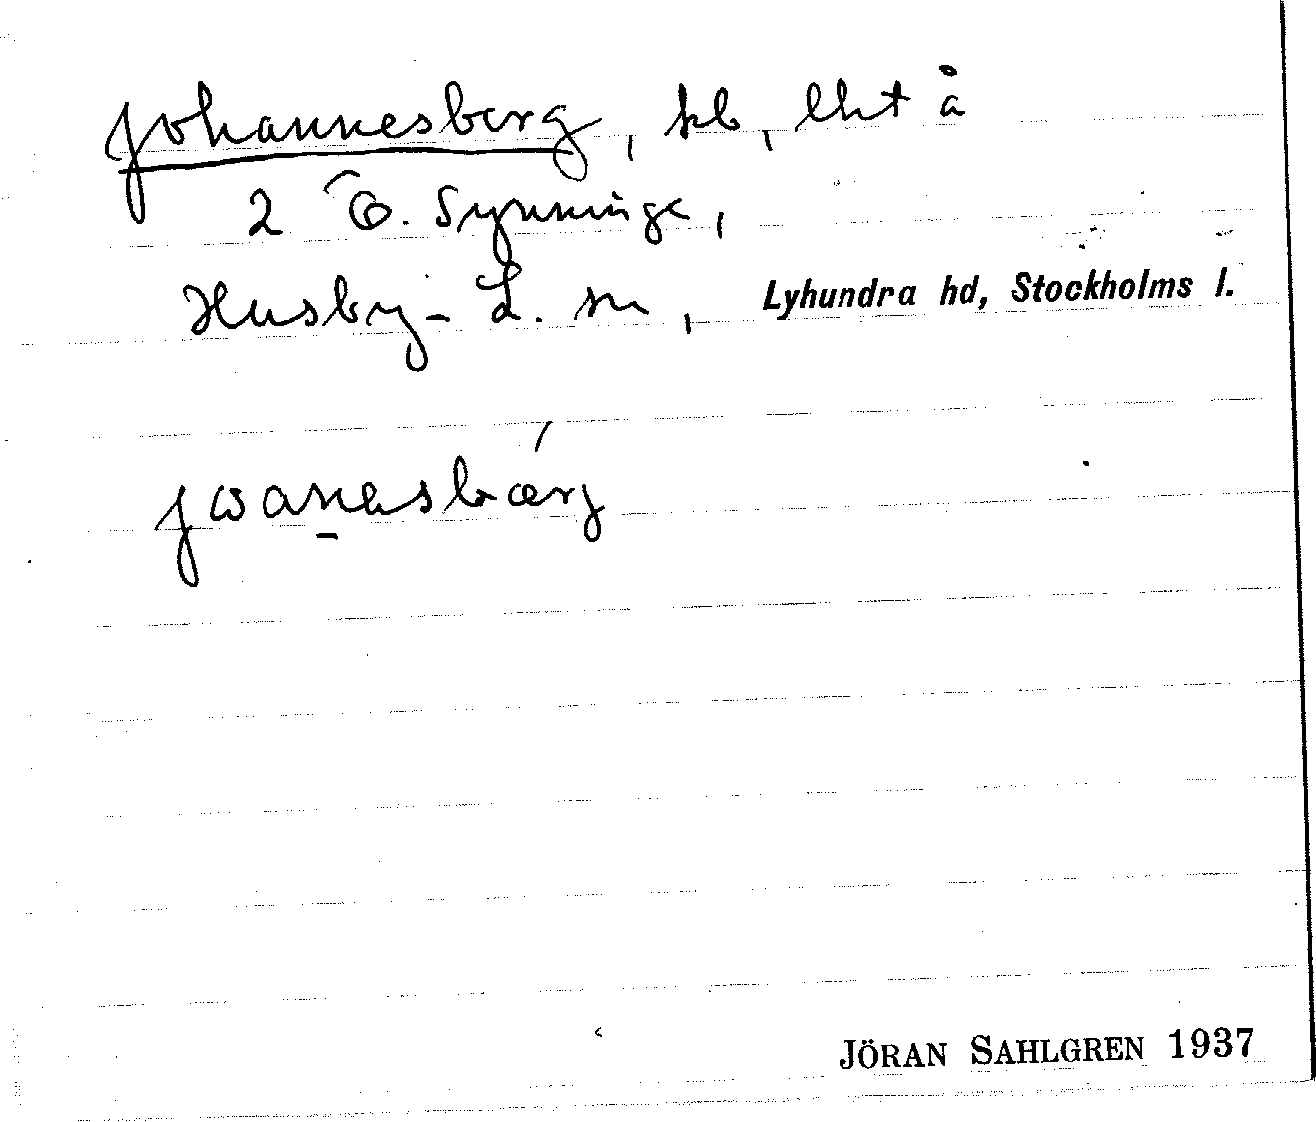 Johannesberg, kb, lht å
2 Ö. Synninge,
Husby-L. sn, Lyhundra hd, Stockholms l.
JÖRAN SAHLGREN 1937